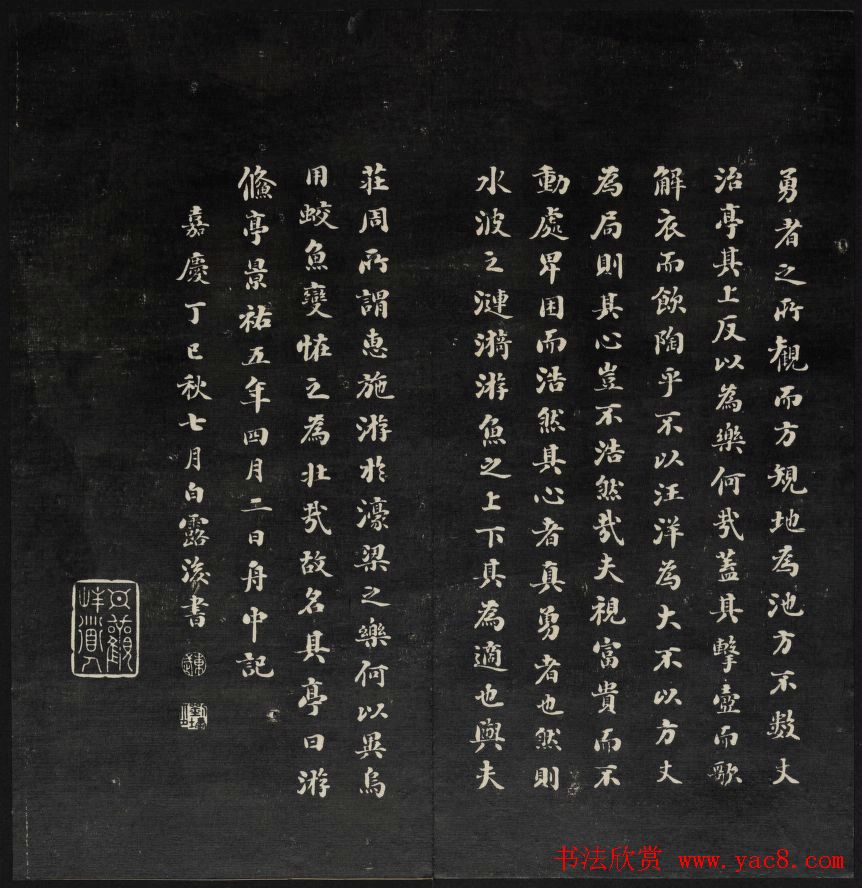 勇者之所觀而方規地為池方不數丈
治亭其上反以為樂何哉蓋其擊壺而歌
解衣而飲陶乎不以汪洋為大不以方丈
為局則其心豈不浩然哉夫視富貴而不
動處卑困而浩然其心者真勇者也然則
水波之漣漪游魚之上下其為適也與夫
莊周所謂惠施游於濠梁之樂何以異烏
用蛟魚變恠之為壯哉故名其亭曰游
鯈亭景祐五年四月二日舟中記
嘉慶丁巳秋七月白露後書
书法欣赏 www.yac8.com